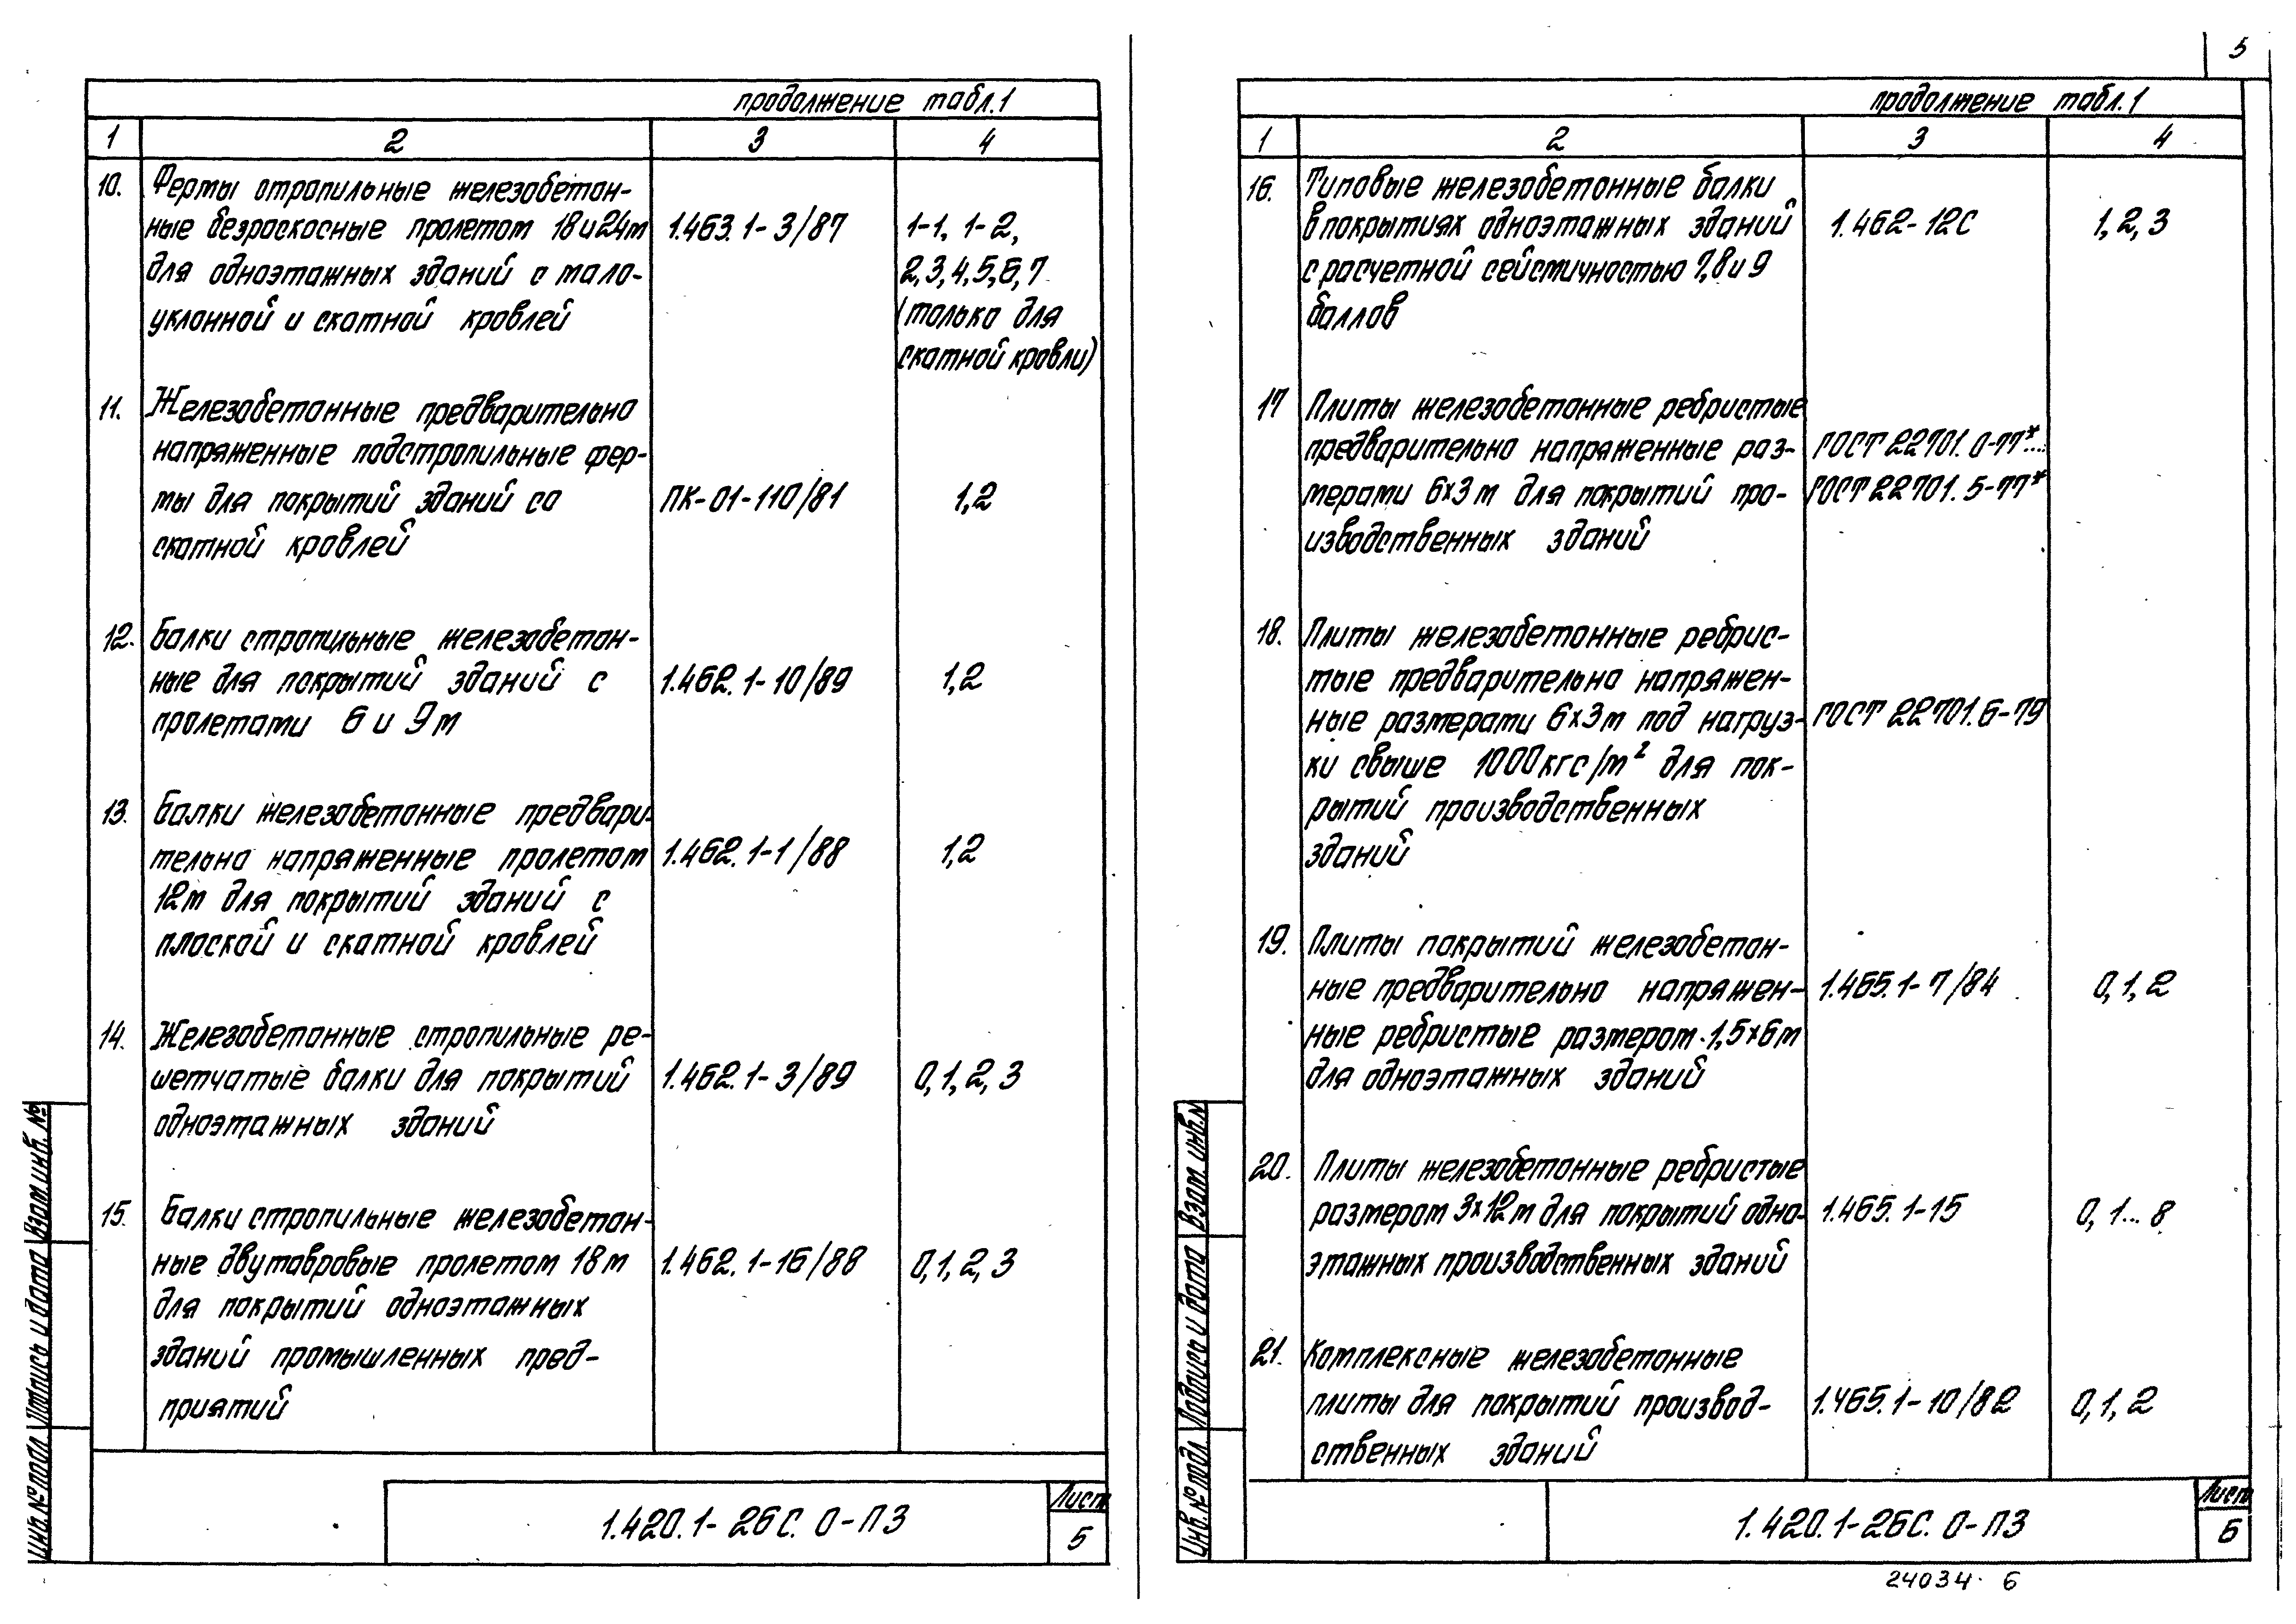 продолжение табл.1
1 2 3 4
10. Фермы стропильные железобетон-
ные безраскосные пролетом 18 и 24м 1.463.1-3/87 1-1, 1-2,
для одноэтажных зданий с мало- 2,3,4,5,6,7
уклонной и скатной кровлей (только для
скатной кровли)
11. Железобетонные предварительно
напряженные подстропильные фер-
мы для покрытий зданий со ПК-01-110/81 1,2
скатной кровлей
12. Балки стропильные железобетон-
ные для покрытий зданий с 1.462.1-10/89 1,2
пролетами 6 и 9м
13. Балки железобетонные предвари-
тельно напряженные пролетом 1.462.1-1/88 1,2
12м для покрытий зданий с
плоской и скатной кровлей
14. Железобетонные стропильные ре-
шетчатые балки для покрытий 1.462.1-3/89 0,1,2,3
одноэтажных зданий
15. Балки стропильные железобетон-
ные двутавровые пролетом 18м 1.462.1-16/88 0,1,2,3
для покрытий одноэтажных
зданий промышленных пред-
приятий
Инв.№подл Подпись и дата Взам.инв.№
1.420.1-26С.0-ПЗ
Лист
5
5
продолжение табл.1
1 2 3 4
16. Типовые железобетонные балки
в покрытиях одноэтажных зданий 1.462-12С 1,2,3
с расчетной сейсмичностью 7,8 и 9
баллов
17 Плиты железобетонные ребристые
предварительно напряженные раз- ГОСТ 22701.0-77*...
мерами 6х3м для покрытий про- ГОСТ 22701.5-77*
изводственных зданий
18. Плиты железобетонные ребрис-
тые предварительно напряжен-
ные размерами 6х3м под нагруз- ГОСТ 22701.6-79
ки свыше 1000кгс/м² для пок-
рытий производственных
зданий
19. Плиты покрытий железобетон-
ные предварительно напряжен- 1.465.1-7/84 0,1,2
ные ребристые размером 1,5х6м
для одноэтажных зданий
20. Плиты железобетонные ребристые
размером 3х12м для покрытий одно- 1.465.1-15 0,1...8
этажных производственных зданий
21. Комплексные железобетонные
плиты для покрытий производ- 1.465.1-10/82 0,1,2
ственных зданий
Инв.№подл. Подпись и дата Взам.инв.№
1.420.1-26С.0-ПЗ
Лист
6
24034 6